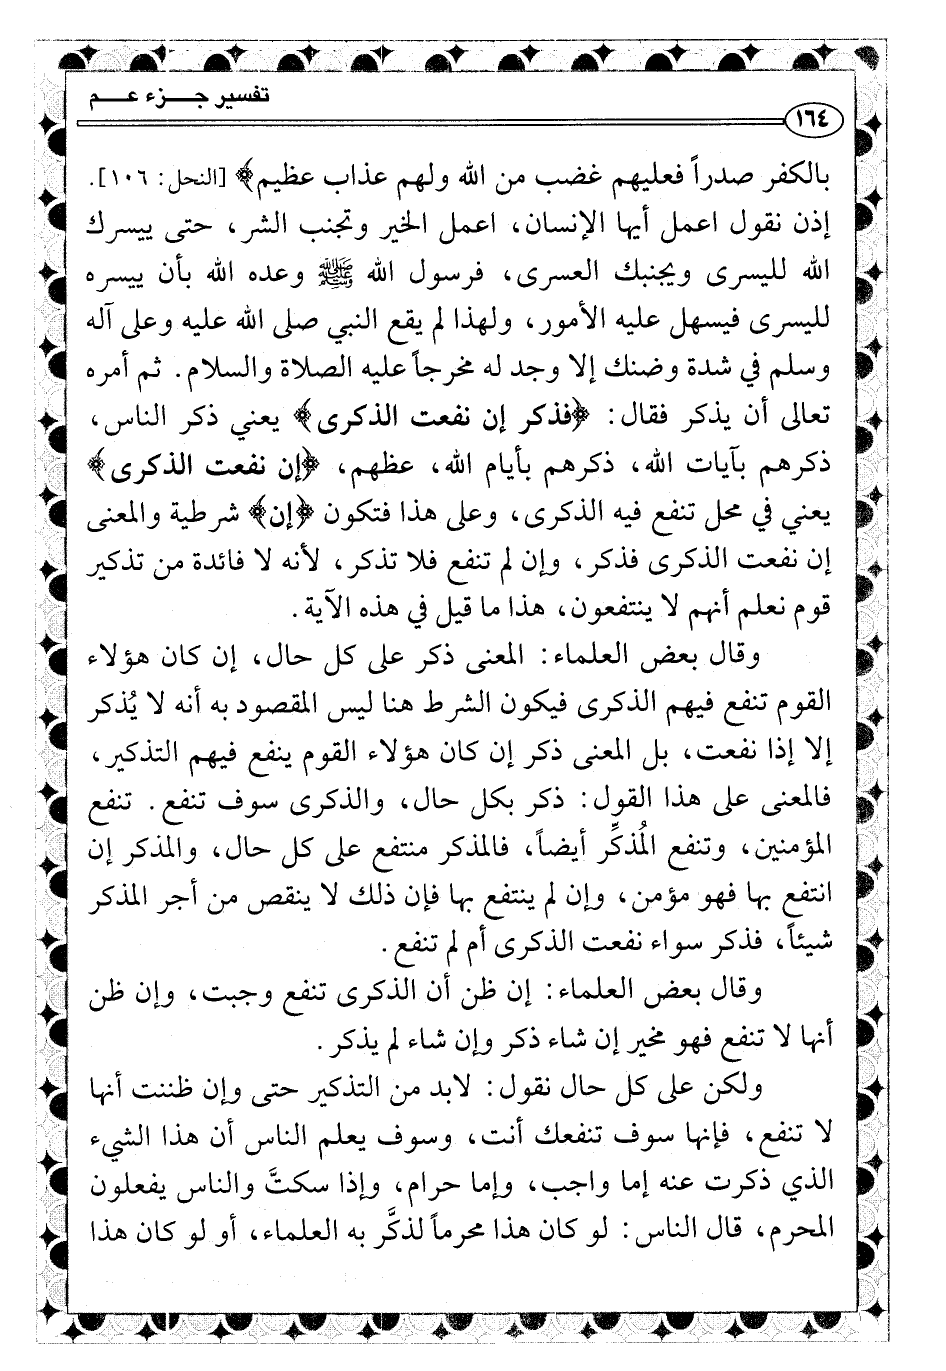 تفسير جـــزء عـــم
١٦٤
بالكفر صدراً فعليهم غضب من الله ولهم عذاب عظيم﴾ [النحل: ١٠٦].
إذن نقول اعمل أيها الإنسان، اعمل الخير وتجنب الشر، حتى ييسرك
الله لليسرى ويجنبك العسرى، فرسول الله ﷺ وعده الله بأن ييسره
لليسرى فيسهل عليه الأمور، ولهذا لم يقع النبي صلى الله عليه وعلى آله
وسلم في شدة وضنك إلا وجد له مخرجاً عليه الصلاة والسلام. ثم أمره
تعالى أن يذكر فقال: ﴿فذكر إن نفعت الذكرى﴾ يعني ذكر الناس،
ذكرهم بآيات الله، ذكرهم بأيام الله، عظهم، ﴿إن نفعت الذكرى﴾
يعني في محل تنفع فيه الذكرى، وعلى هذا فتكون ﴿إن﴾ شرطية والمعنى
إن نفعت الذكرى فذكر، وإن لم تنفع فلا تذكر، لأنه لا فائدة من تذكير
قوم نعلم أنهم لا ينتفعون، هذا ما قيل في هذه الآية.
وقال بعض العلماء: المعنى ذكر على كل حال، إن كان هؤلاء
القوم تنفع فيهم الذكرى فيكون الشرط هنا ليس المقصود به أنه لا يُذكر
إلا إذا نفعت، بل المعنى ذكر إن كان هؤلاء القوم ينفع فيهم التذكير،
فالمعنى على هذا القول: ذكر بكل حال، والذكرى سوف تنفع. تنفع
المؤمنين، وتنفع المُذكِّر أيضاً، فالمذكر منتفع على كل حال، والمذكر إن
انتفع بها فهو مؤمن، وإن لم ينتفع بها فإن ذلك لا ينقص من أجر المذكر
شيئاً، فذكر سواء نفعت الذكرى أم لم تنفع.
وقال بعض العلماء: إن ظن أن الذكرى تنفع وجبت، وإن ظن
أنها لا تنفع فهو مخير إن شاء ذكر وإن شاء لم يذكر.
ولكن على كل حال نقول: لابد من التذكير حتى وإن ظننت أنها
لا تنفع، فإنها سوف تنفعك أنت، وسوف يعلم الناس أن هذا الشيء
الذي ذكرت عنه إما واجب، وإما حرام، وإذا سكتَّ والناس يفعلون
المحرم، قال الناس: لو كان هذا محرماً لذكَّر به العلماء، أو لو كان هذا